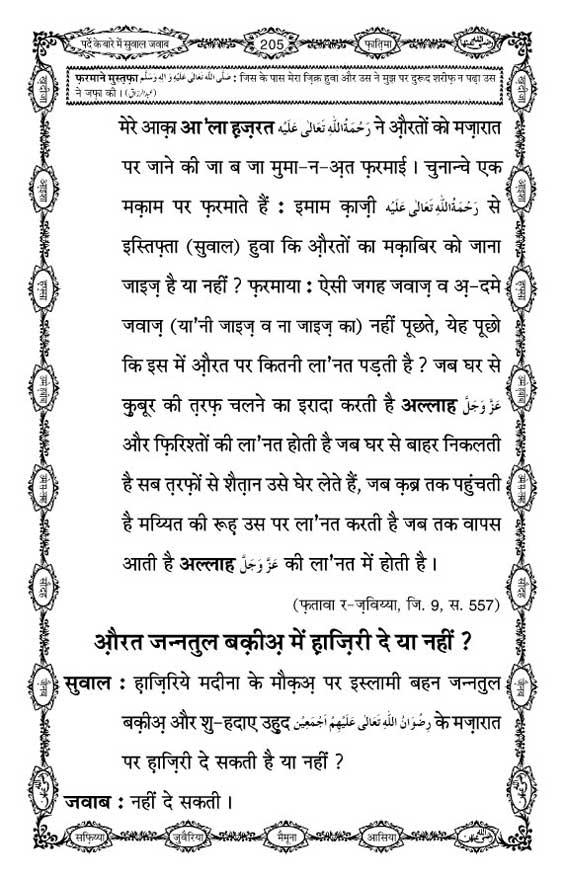 पर्दे के बारे में सुवाल जवाब 205 फ़ातिमा رضی اللہ عنہا
फ़रमाने मुस्तफ़ा صَلَّى اللهُ تَعَالٰى عَلَيْهِ وَاٰلِهٖ وَسَلَّم : जिस के पास मेरा ज़िक्र हुवा और उस ने मुझ पर दुरूद शरीफ़ न पढ़ा उस
ने जफ़ा की। (عبدالرزاق)
मेरे आक़ा आ'ला हज़रत رَحْمَةُ اللهِ تَعَالٰى عَلَيْه ने औ़रतों को मज़ारात
पर जाने की जा ब जा मुमा-न-अ़त फ़रमाई। चुनान्चे एक
मक़ाम पर फ़रमाते हैं : इमाम क़ाज़ी رَحْمَةُ اللهِ تَعَالٰى عَلَيْه से
इस्तिफ़्ता (सुवाल) हुवा कि औ़रतों का मक़ाबिर को जाना
जाइज़ है या नहीं ? फ़रमाया : ऐसी जगह जवाज़ व अ़-दमे
जवाज़ (या'नी जाइज़ व ना जाइज़ का) नहीं पूछते, येह पूछो
कि इस में औ़रत पर कितनी ला'नत पड़ती है ? जब घर से
क़ुबूर की त़रफ़ चलने का इरादा करती है अल्लाह عَزَّوَجَلَّ
और फ़िरिश्तों की ला'नत होती है जब घर से बाहर निकलती
है सब त़रफ़ों से शैत़ान उसे घेर लेते हैं, जब क़ब्र तक पहुंचती
है मय्यित की रूह़ उस पर ला'नत करती है जब तक वापस
आती है अल्लाह عَزَّوَجَلَّ की ला'नत में होती है।
(फ़तावा र-ज़विय्या, जि. 9, स. 557)
औ़रत जन्नतुल बक़ीअ़ में ह़ाज़िरी दे या नहीं ?
सुवाल : ह़ाज़िरिये मदीना के मौक़अ़ पर इस्लामी बहन जन्नतुल
बक़ीअ़ और शु-हदाए उहुद رِضْوَانُ اللهِ تَعَالٰى عَلَيْهِمْ اَجْمَعِيْن के मज़ारात
पर ह़ाज़िरी दे सकती है या नहीं ?
जवाब : नहीं दे सकती।
सफ़िय्या जुवैरिया मैमूना आसिया